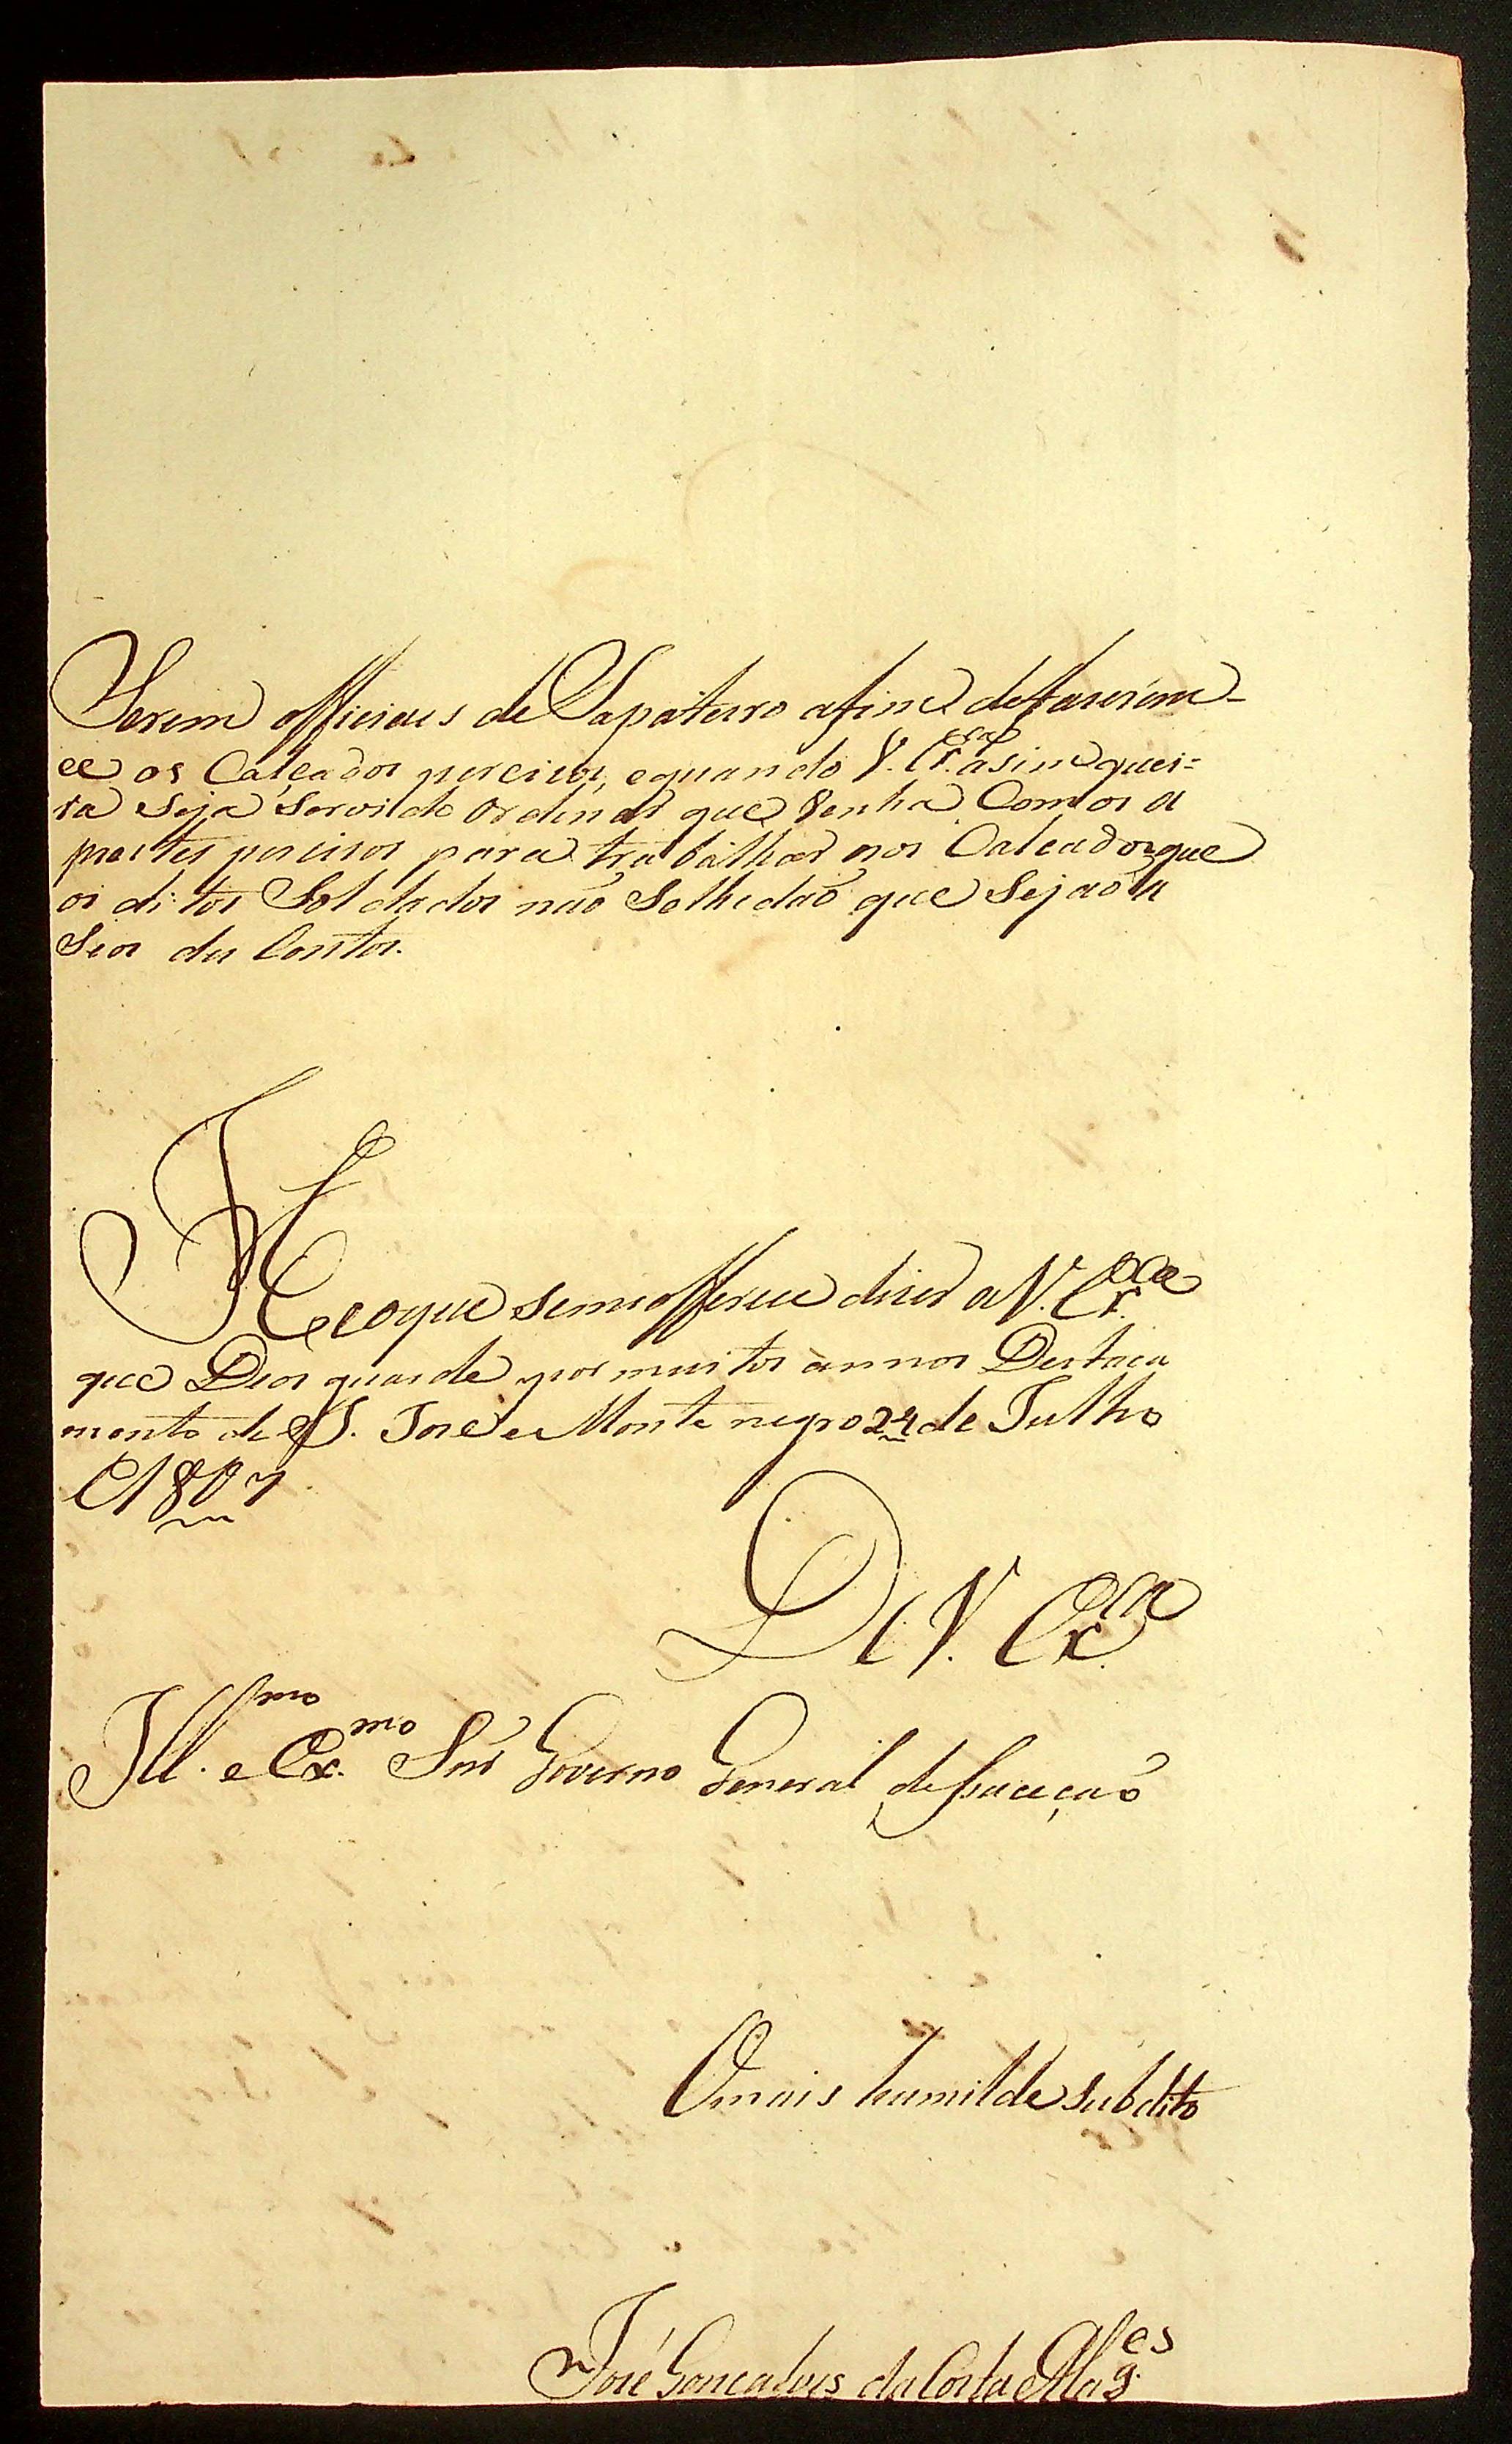 Serem officiaes de Sapateiro afim de fazerem-
ce os Calçados percizos, e quando V. Ex.cia asim quei=
ra Seja Servido ordenar que Venha Com os a
prestes percizos para trabalhar nos Calcados que
os ditos Soldados não Selhe dao que Sejaõ a
Seos du Contos.
He o que se me offerece dizer a V. Ex.cia
que Deos guarde por muitos annos Destaca
mento de S. Joze e Monte negro 24 de Julho
1807
De V. Ex.cia
Ill.mo e Ex.mo Snr Governo General de Suceçaõ
O mais humilde Subdito
José Gonçalves da Costa Mag.es